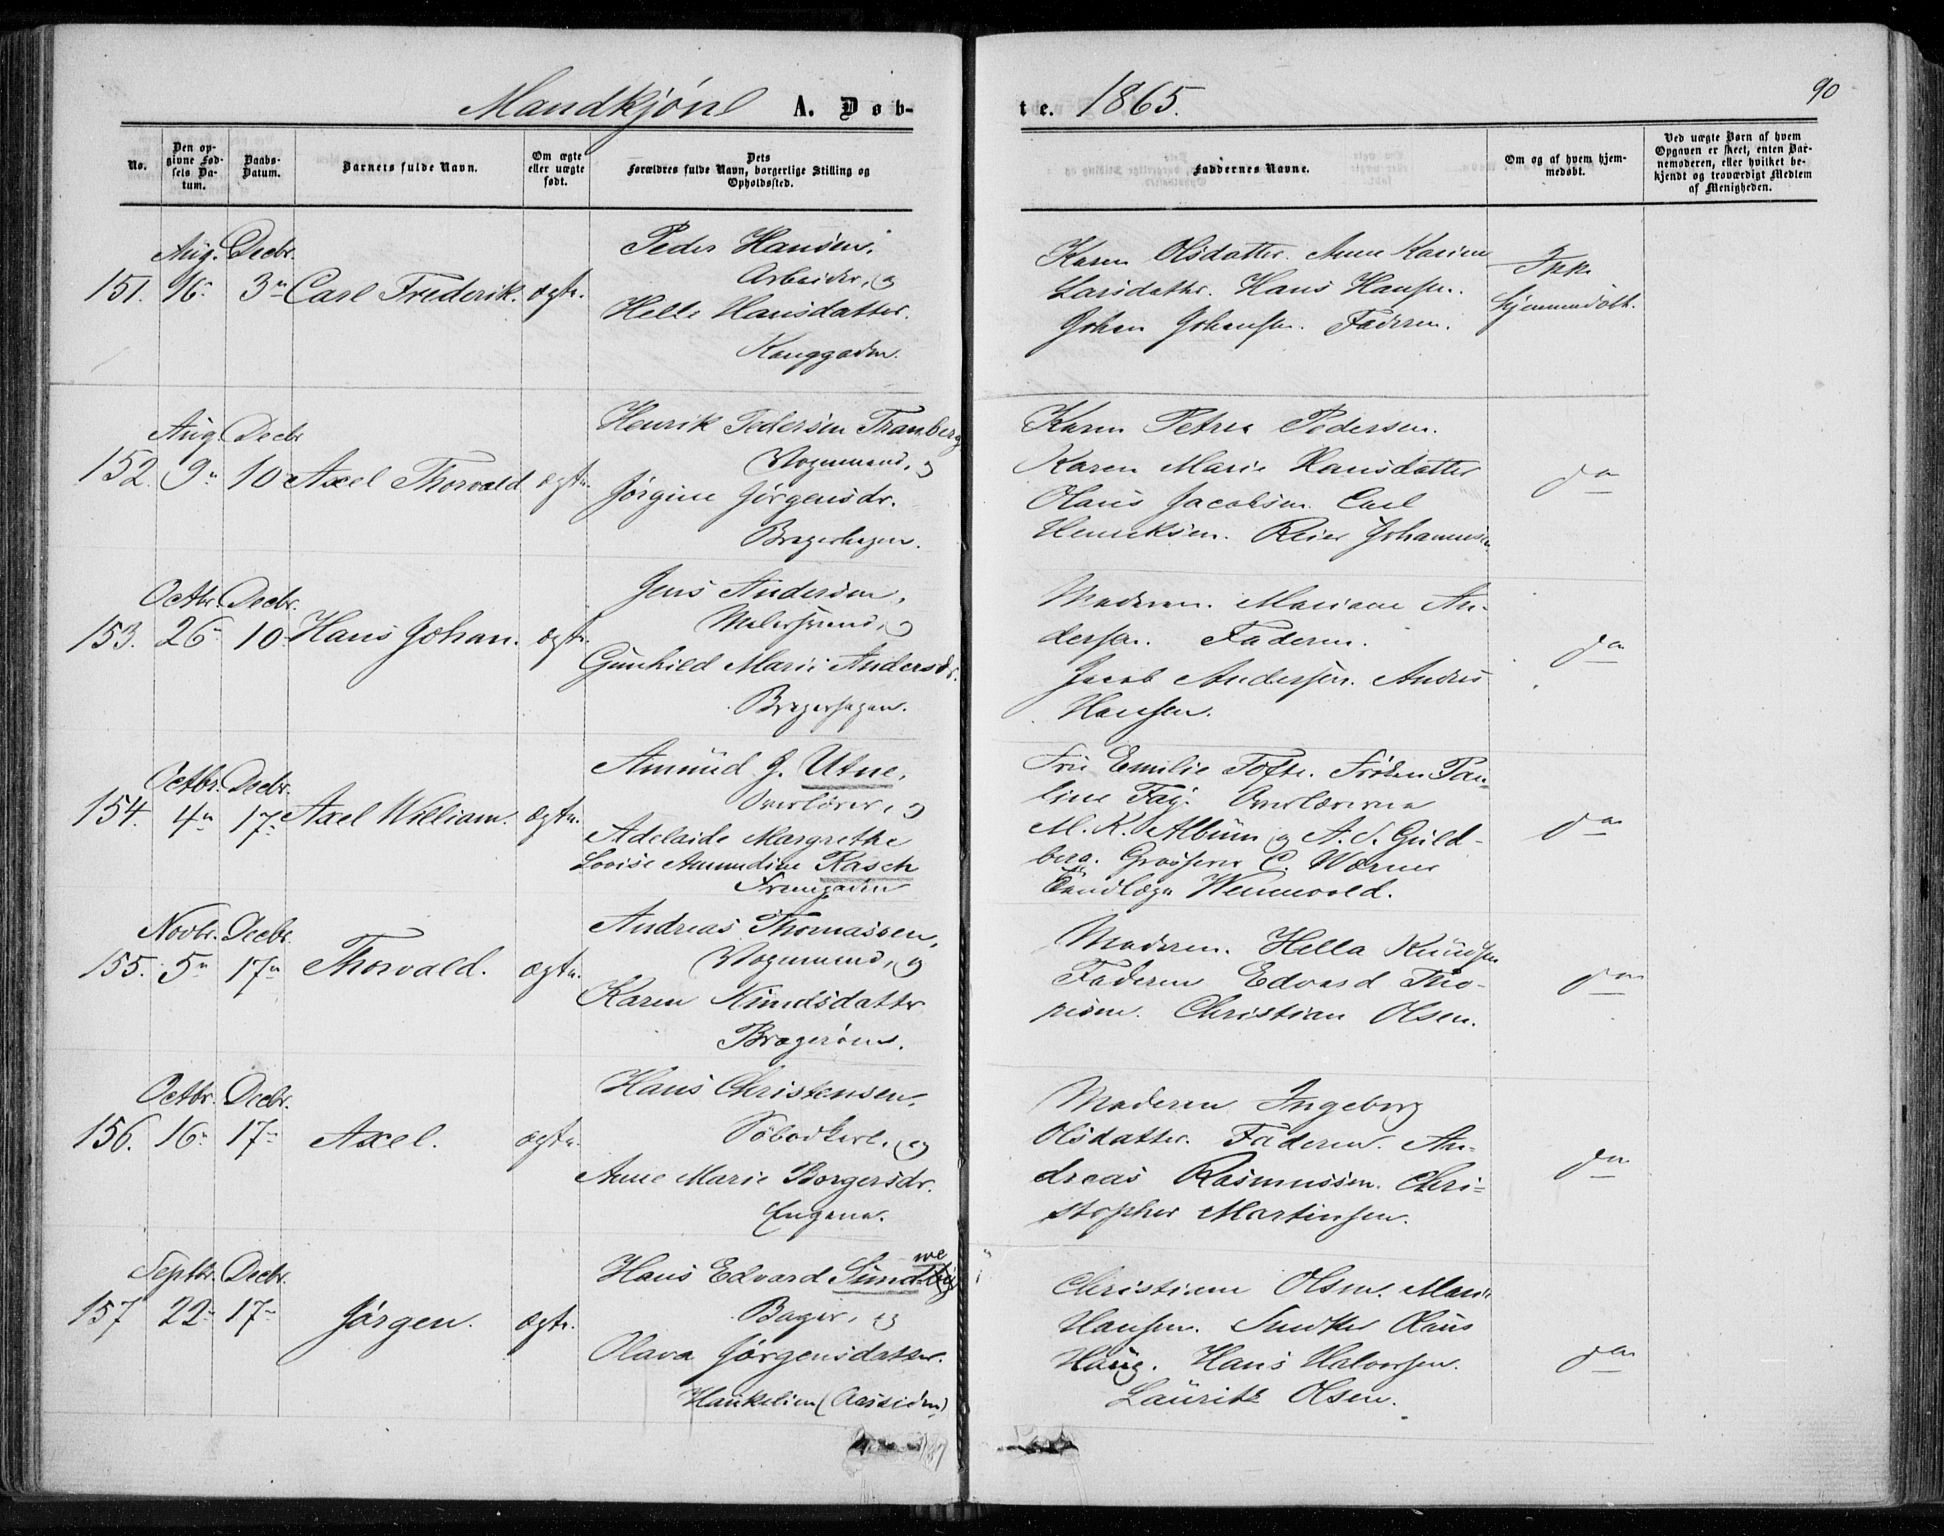 Mandkjøn A. Døb-
te. 1865.
90
No.
Den op-
givne Fød-
sels Da-
tum.
Daabs-
Datum.
Barnets fulde Navn.
Om ægte
eller uægte
født.
Dets
Forældres fulde Navn, borgerlige Stilling og
Opholdssted.
Faddernes Navne.
Om og af hvem hjem-
medøbt.
Ved uægte Børn af hvem
Opgaven er skeet, enten Bar-
nemoderen, eller hvilket be-
kjendt og troværdigt Medlem
af Menigheden.
Aug. Decbr.
151. 16 3 Carl Frederik. ægte.
Peder Hansen,
Arbeider, og
Helle Hansdatter.
Konggaden.
Karen Olsdatter. Anne Karine
Larsdatter. Hans Hansen.
Johan Johansen. Faderen.
Ikke
hjemmedøbt.
Aug. Decbr
152. 9 10 Axel Thorvald ægte.
Henrik Pedersen Tranberg
Vognmand, og
Jørgine Jørgensdr.
Bragerhagen.
Karen Petrea Pedersen.
Karen Marie Hansdatter
Olaus Jacobsen Carl
Henriksen. Reier Johannesen
do
Octbr. Decbr.
153. 26 10 Hans Johan. ægte.
Jens Andersen,
Malersvend, og
Gunhild Marie Andersdr.
Bragerhagen.
Moderen. Mariane An-
dersen. Faderen.
Jacob Andersen. Andreas
Hansen.
do
Octbr. Decbr.
154. 4 17 Axel William. ægte.
Amund J. Utne,
Overlærer, og
Adelaide Margrethe
Lovise Amundine Rasch
Fru Emilie Tofte. Frøken Pau-
line Fay. Overlærerne
M. K. Album og A. S. Guld-
berg. Grosserer C. Wærner
Tandlæge Wennevold.
do
Novbr. Decbr.
155. 5 17 Thorvald. ægte.
Andreas Thomassen,
Vognmand, og
Karen Knudsdatter
Bragerøen.
Moderen. Hella Knudsen
Faderen Edvard Tho-
resen. Christian Olsen.
do
Octbr. Decbr.
156. 16 17 Axel. ægte.
Hans Christensen,
og
Anne Marie Borgersdr.
Engene.
Moderen Ingeborg
Olsdatter. Faderen. An-
dreas Rasmussen. Chri-
stopher Martinsen.
do
Septbr. Decbr.
157 22 17 Jørgen. ægte.
Hans Edvard Sundby
Bager, og
Olava Jørgensdatter.
Haukelien
Christiane Olsen. Marie
Hansen. Snedker Olaus
Haug. Hans Halvorsen.
Lauritz Olsen.
do